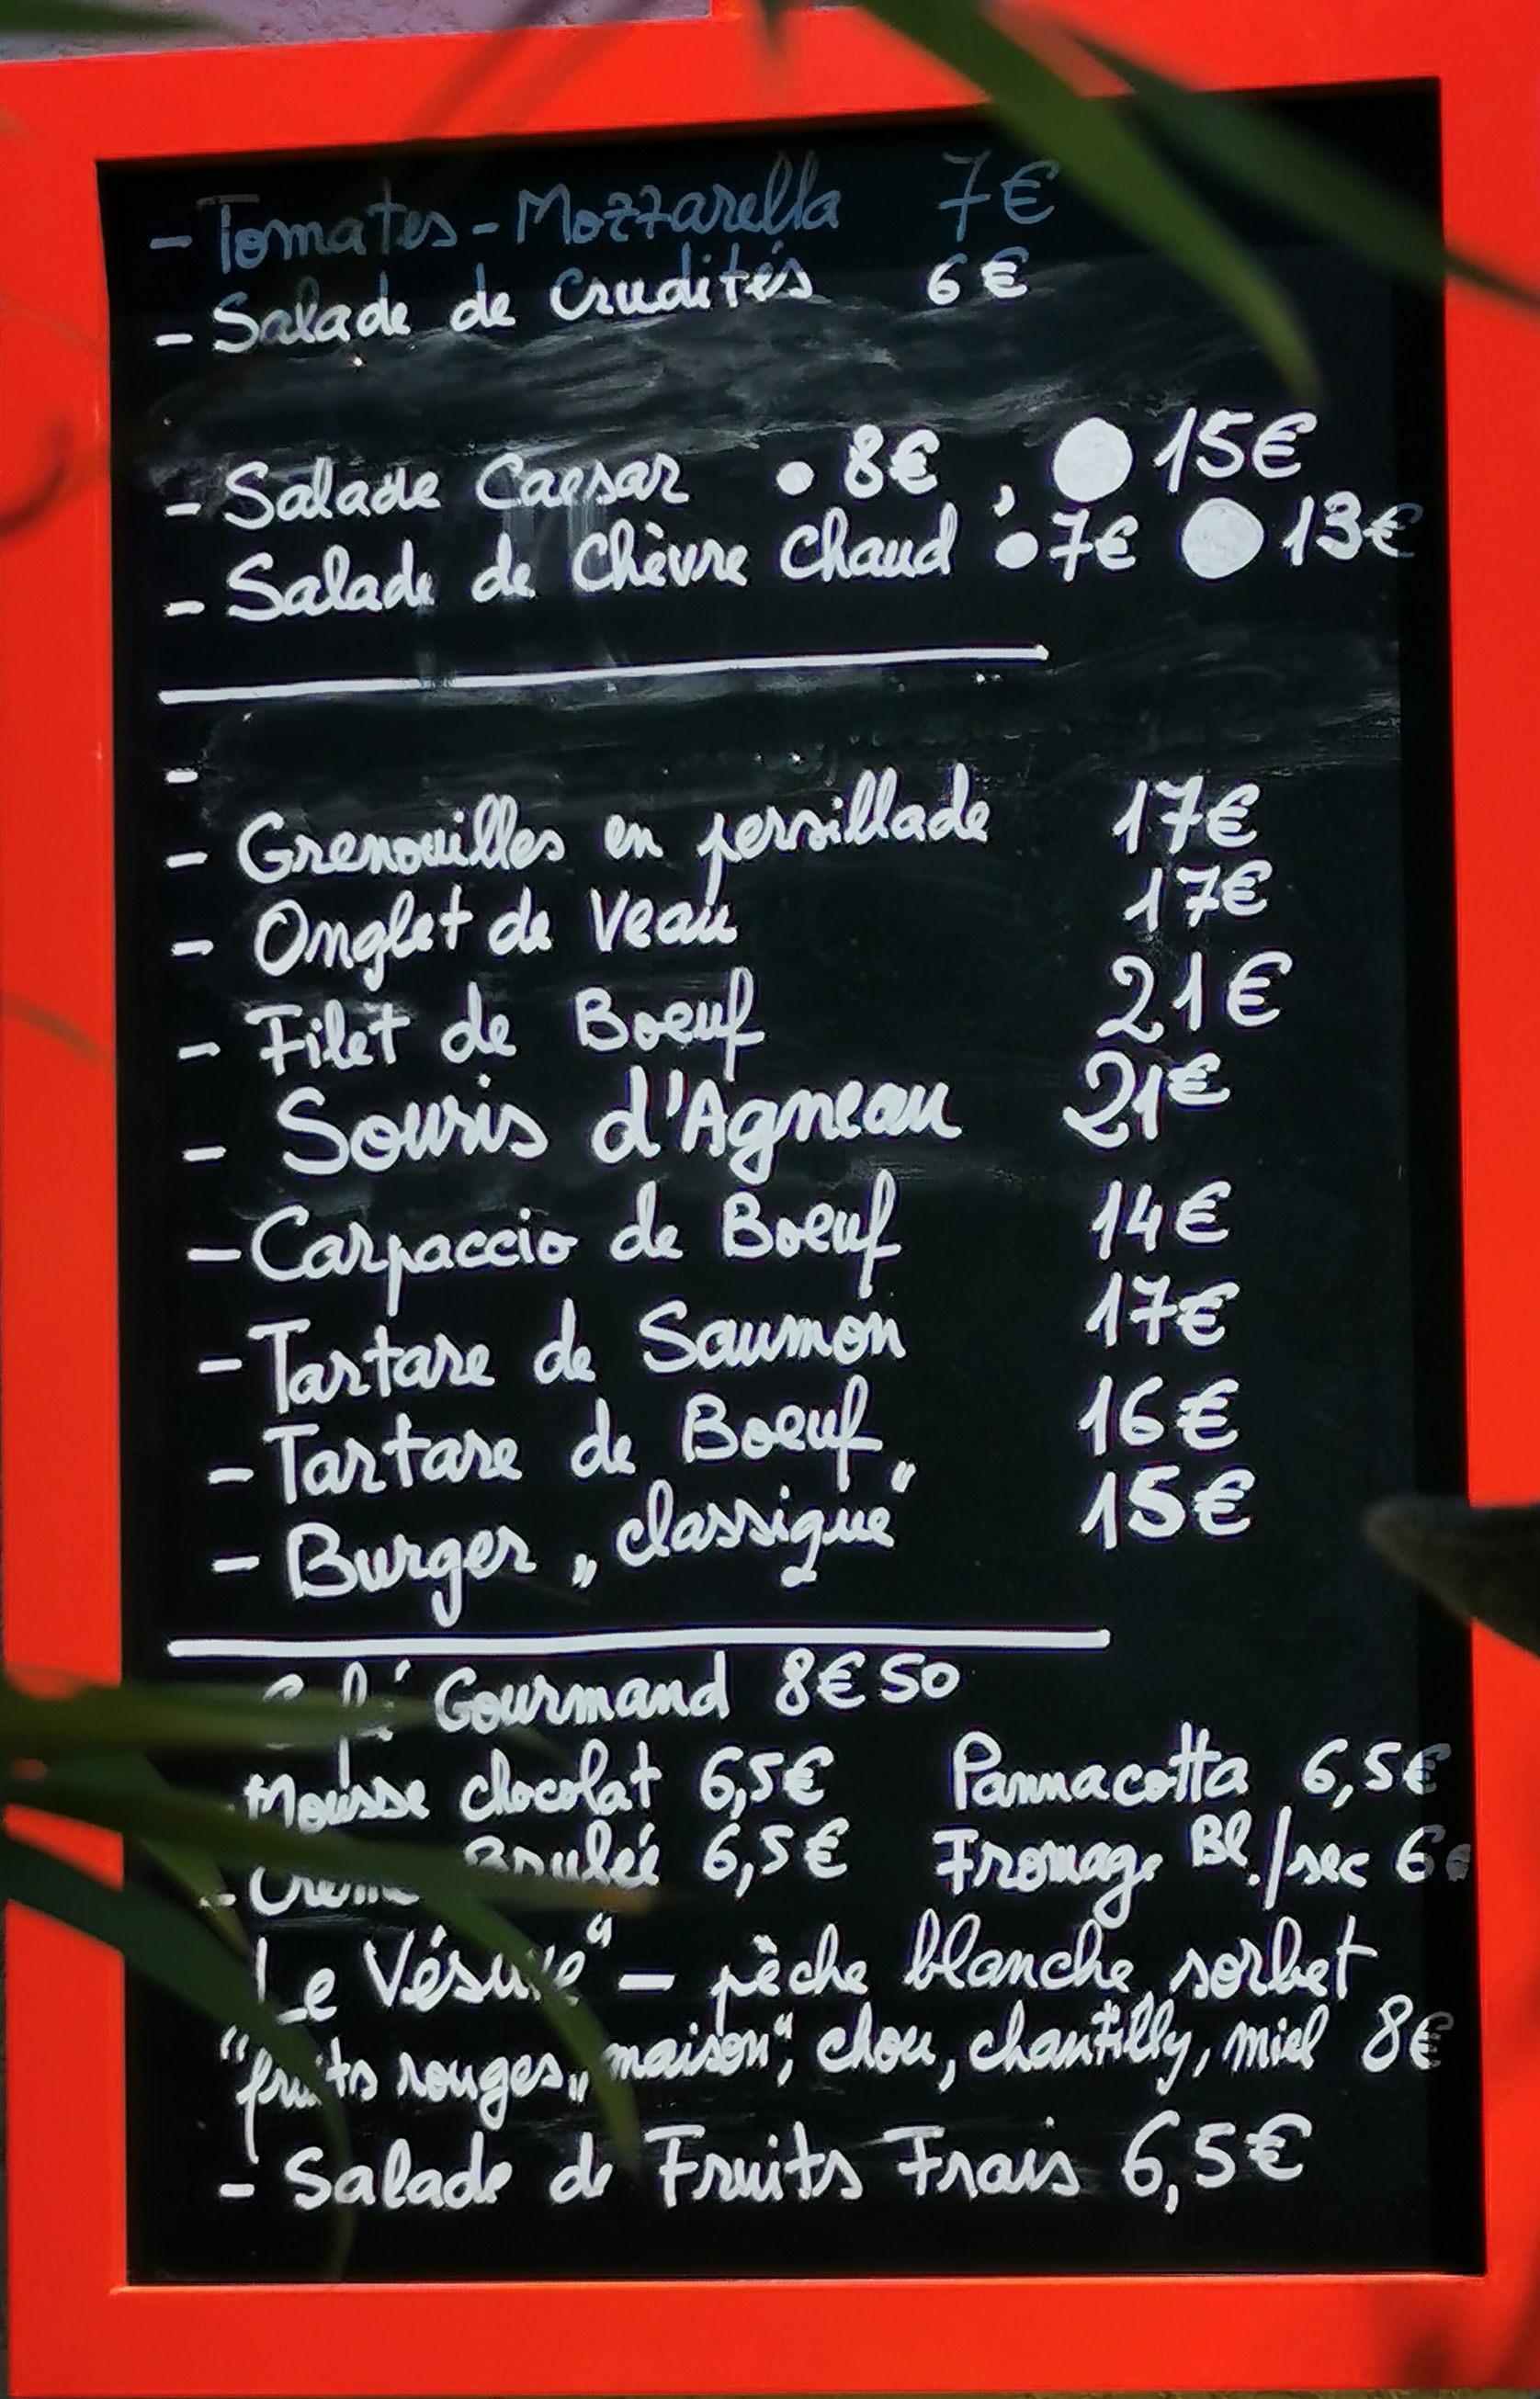 - Tomates - Mozzarella 7€
- Salade de Crudités 6€
- Salade Caesar • 8€, ● 15€
- Salade de Chèvre Chaud • 7€ ● 13€
-
- Grenouilles en persillade 17€
- Onglet de Veau 17€
- Filet de Boeuf 21€
- Souris d'Agneau 21€
- Carpaccio de Boeuf 14€
- Tartare de Saumon 17€
- Tartare de Boeuf 16€
- Burger „classique" 15€
Café Gourmand 8€50
Mousse chocolat 6,5€ Pannacotta 6,5€
- Crème Brulée 6,5€ Fromage Bl./sec 6€
Le Vésuve" — pèche blanche, sorbet
"fruits rouges„ maison", chou, chantilly, miel 8€
- Salade de Fruits Frais 6,5€